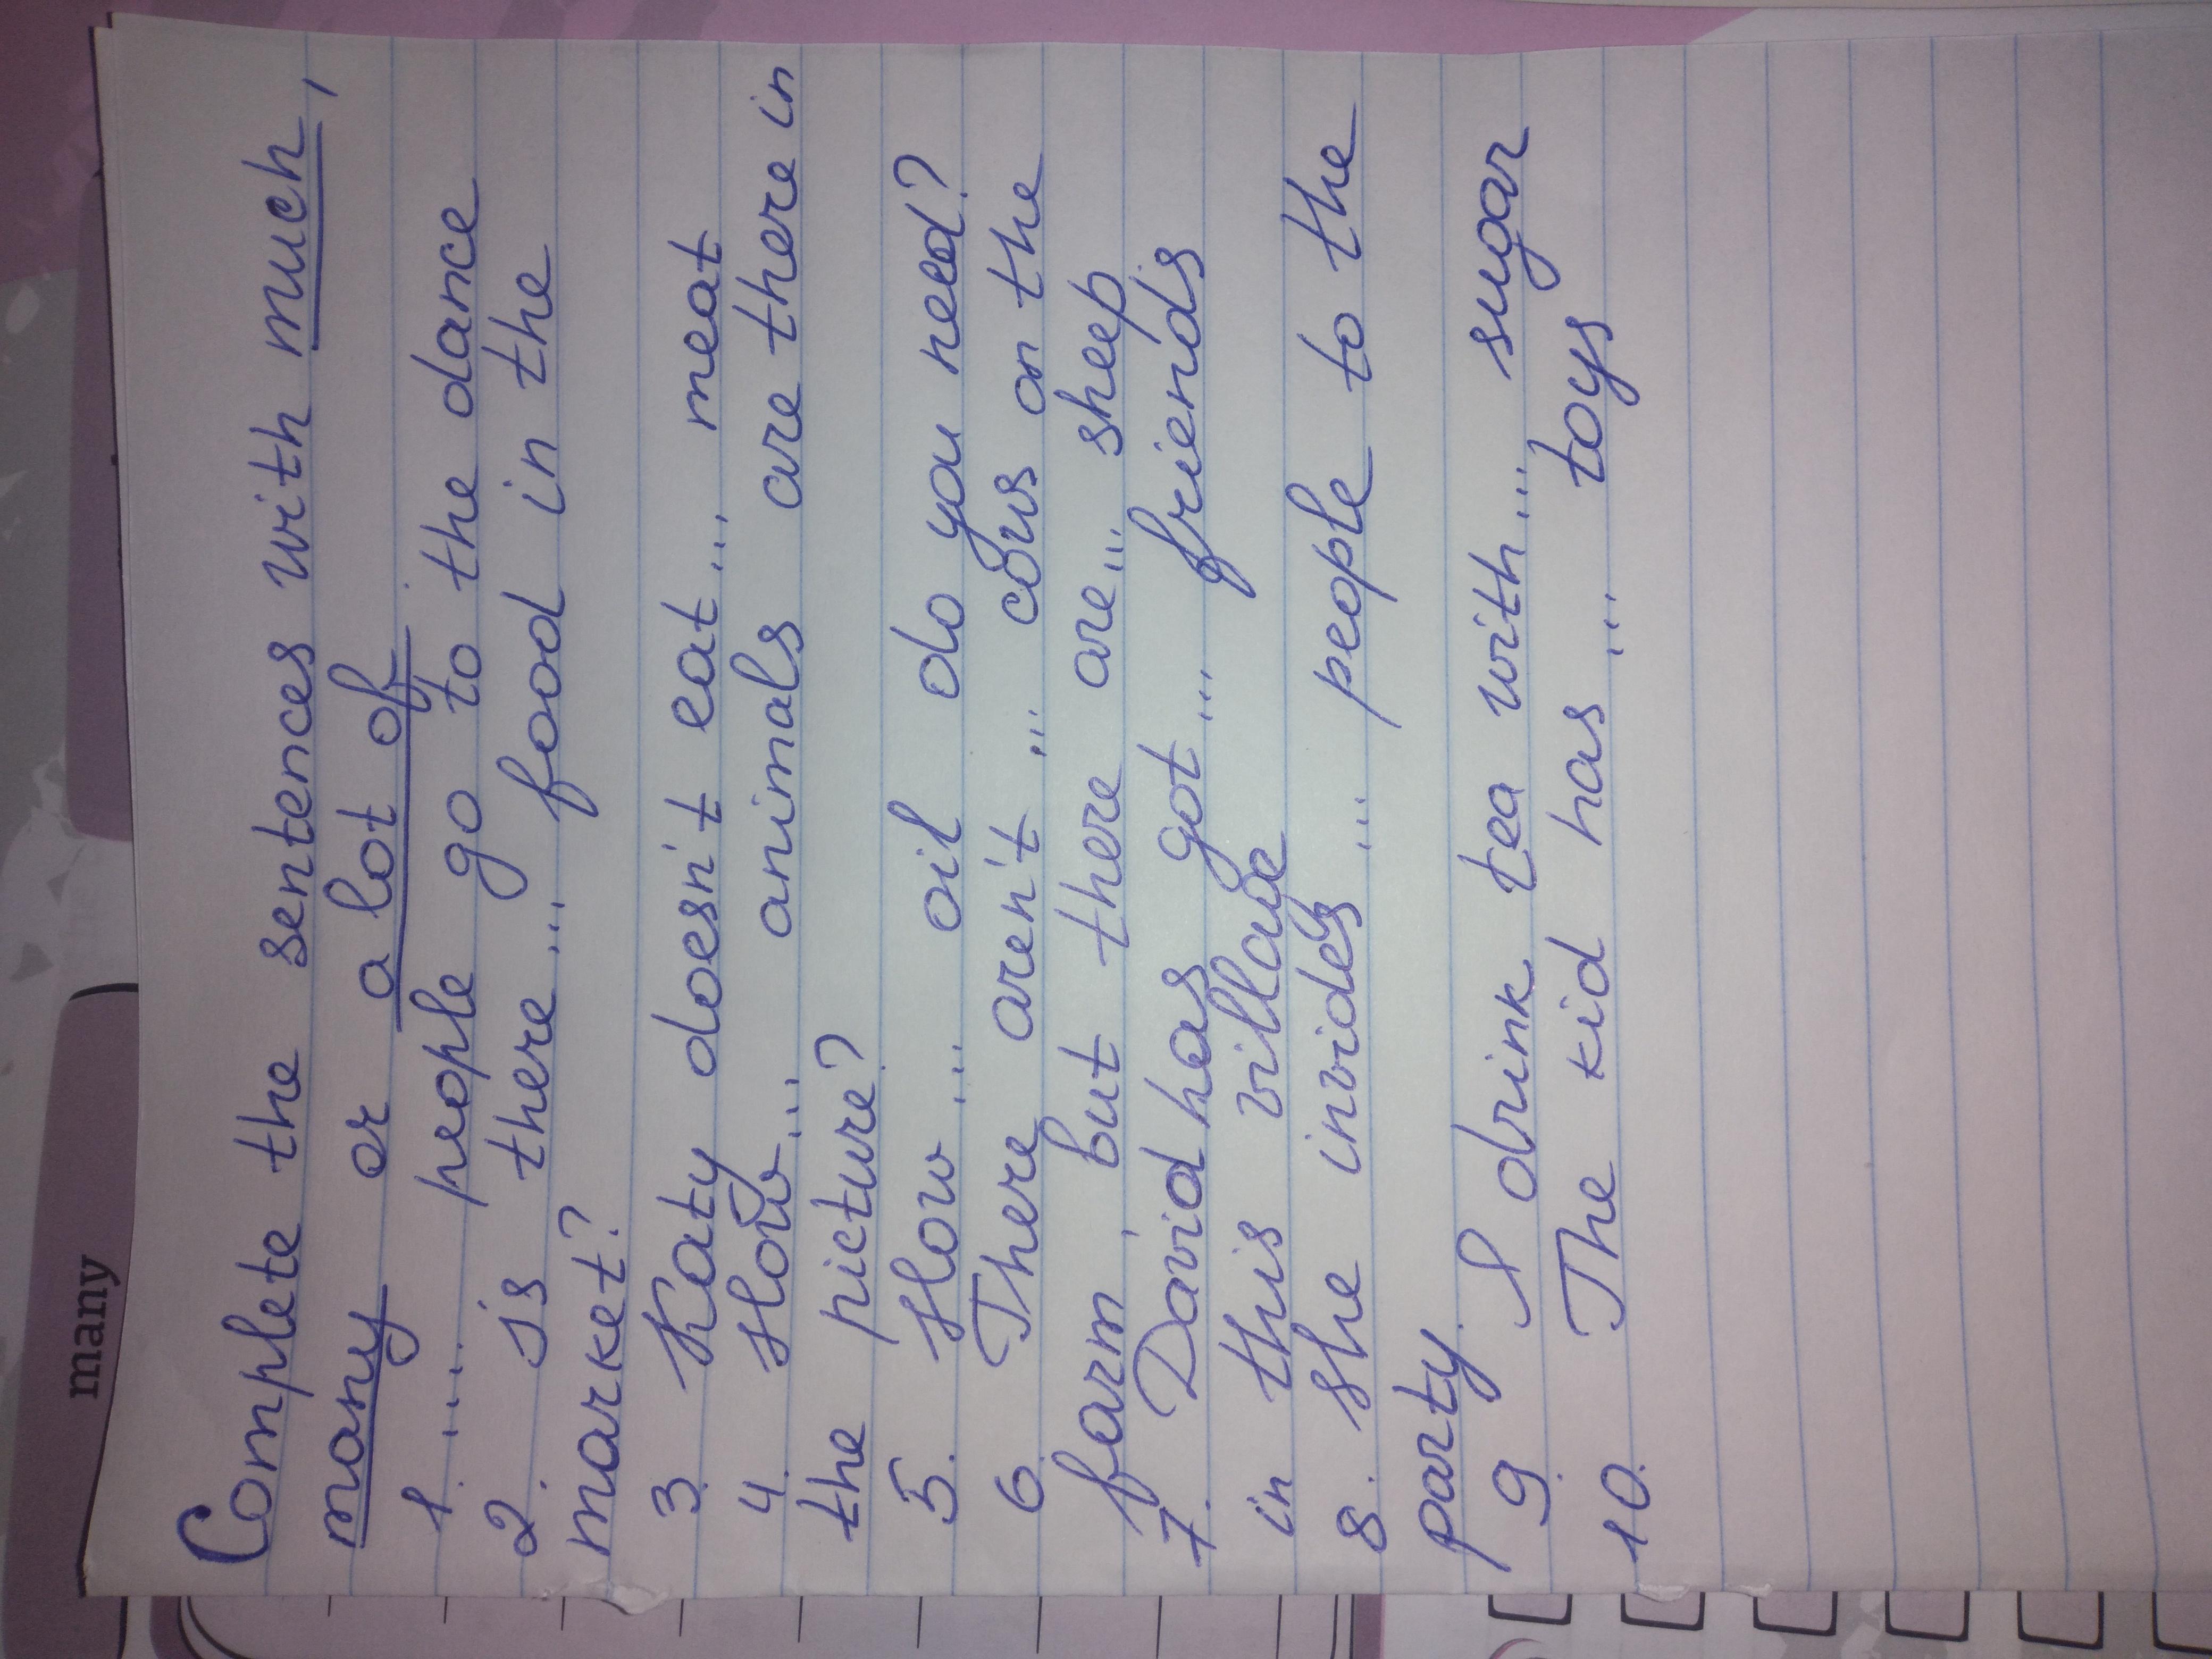 many
Complete the sentences with much,
many or a lot of
1. ... people go to the dance
2. is there... food in the
market?
3. Katy doesn't eat... meat
4. How... animals are there in
the picture?
5. How... oil do you need?
6. There aren't... cows on the
farm, but there are... sheep
7. David has got... friends
in this village
8. She invides ... people to the
party.
9. I drink tea with... sugar
10. The kid has ... toys